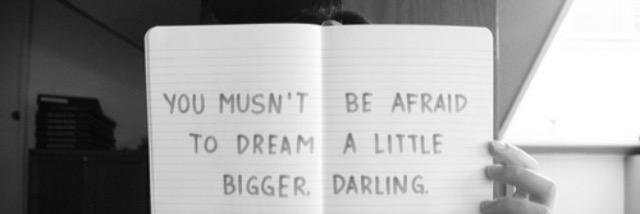 YOU MUSN'T BE AFRAID
TO DREAM A LITTLE
BIGGER, DARLING.